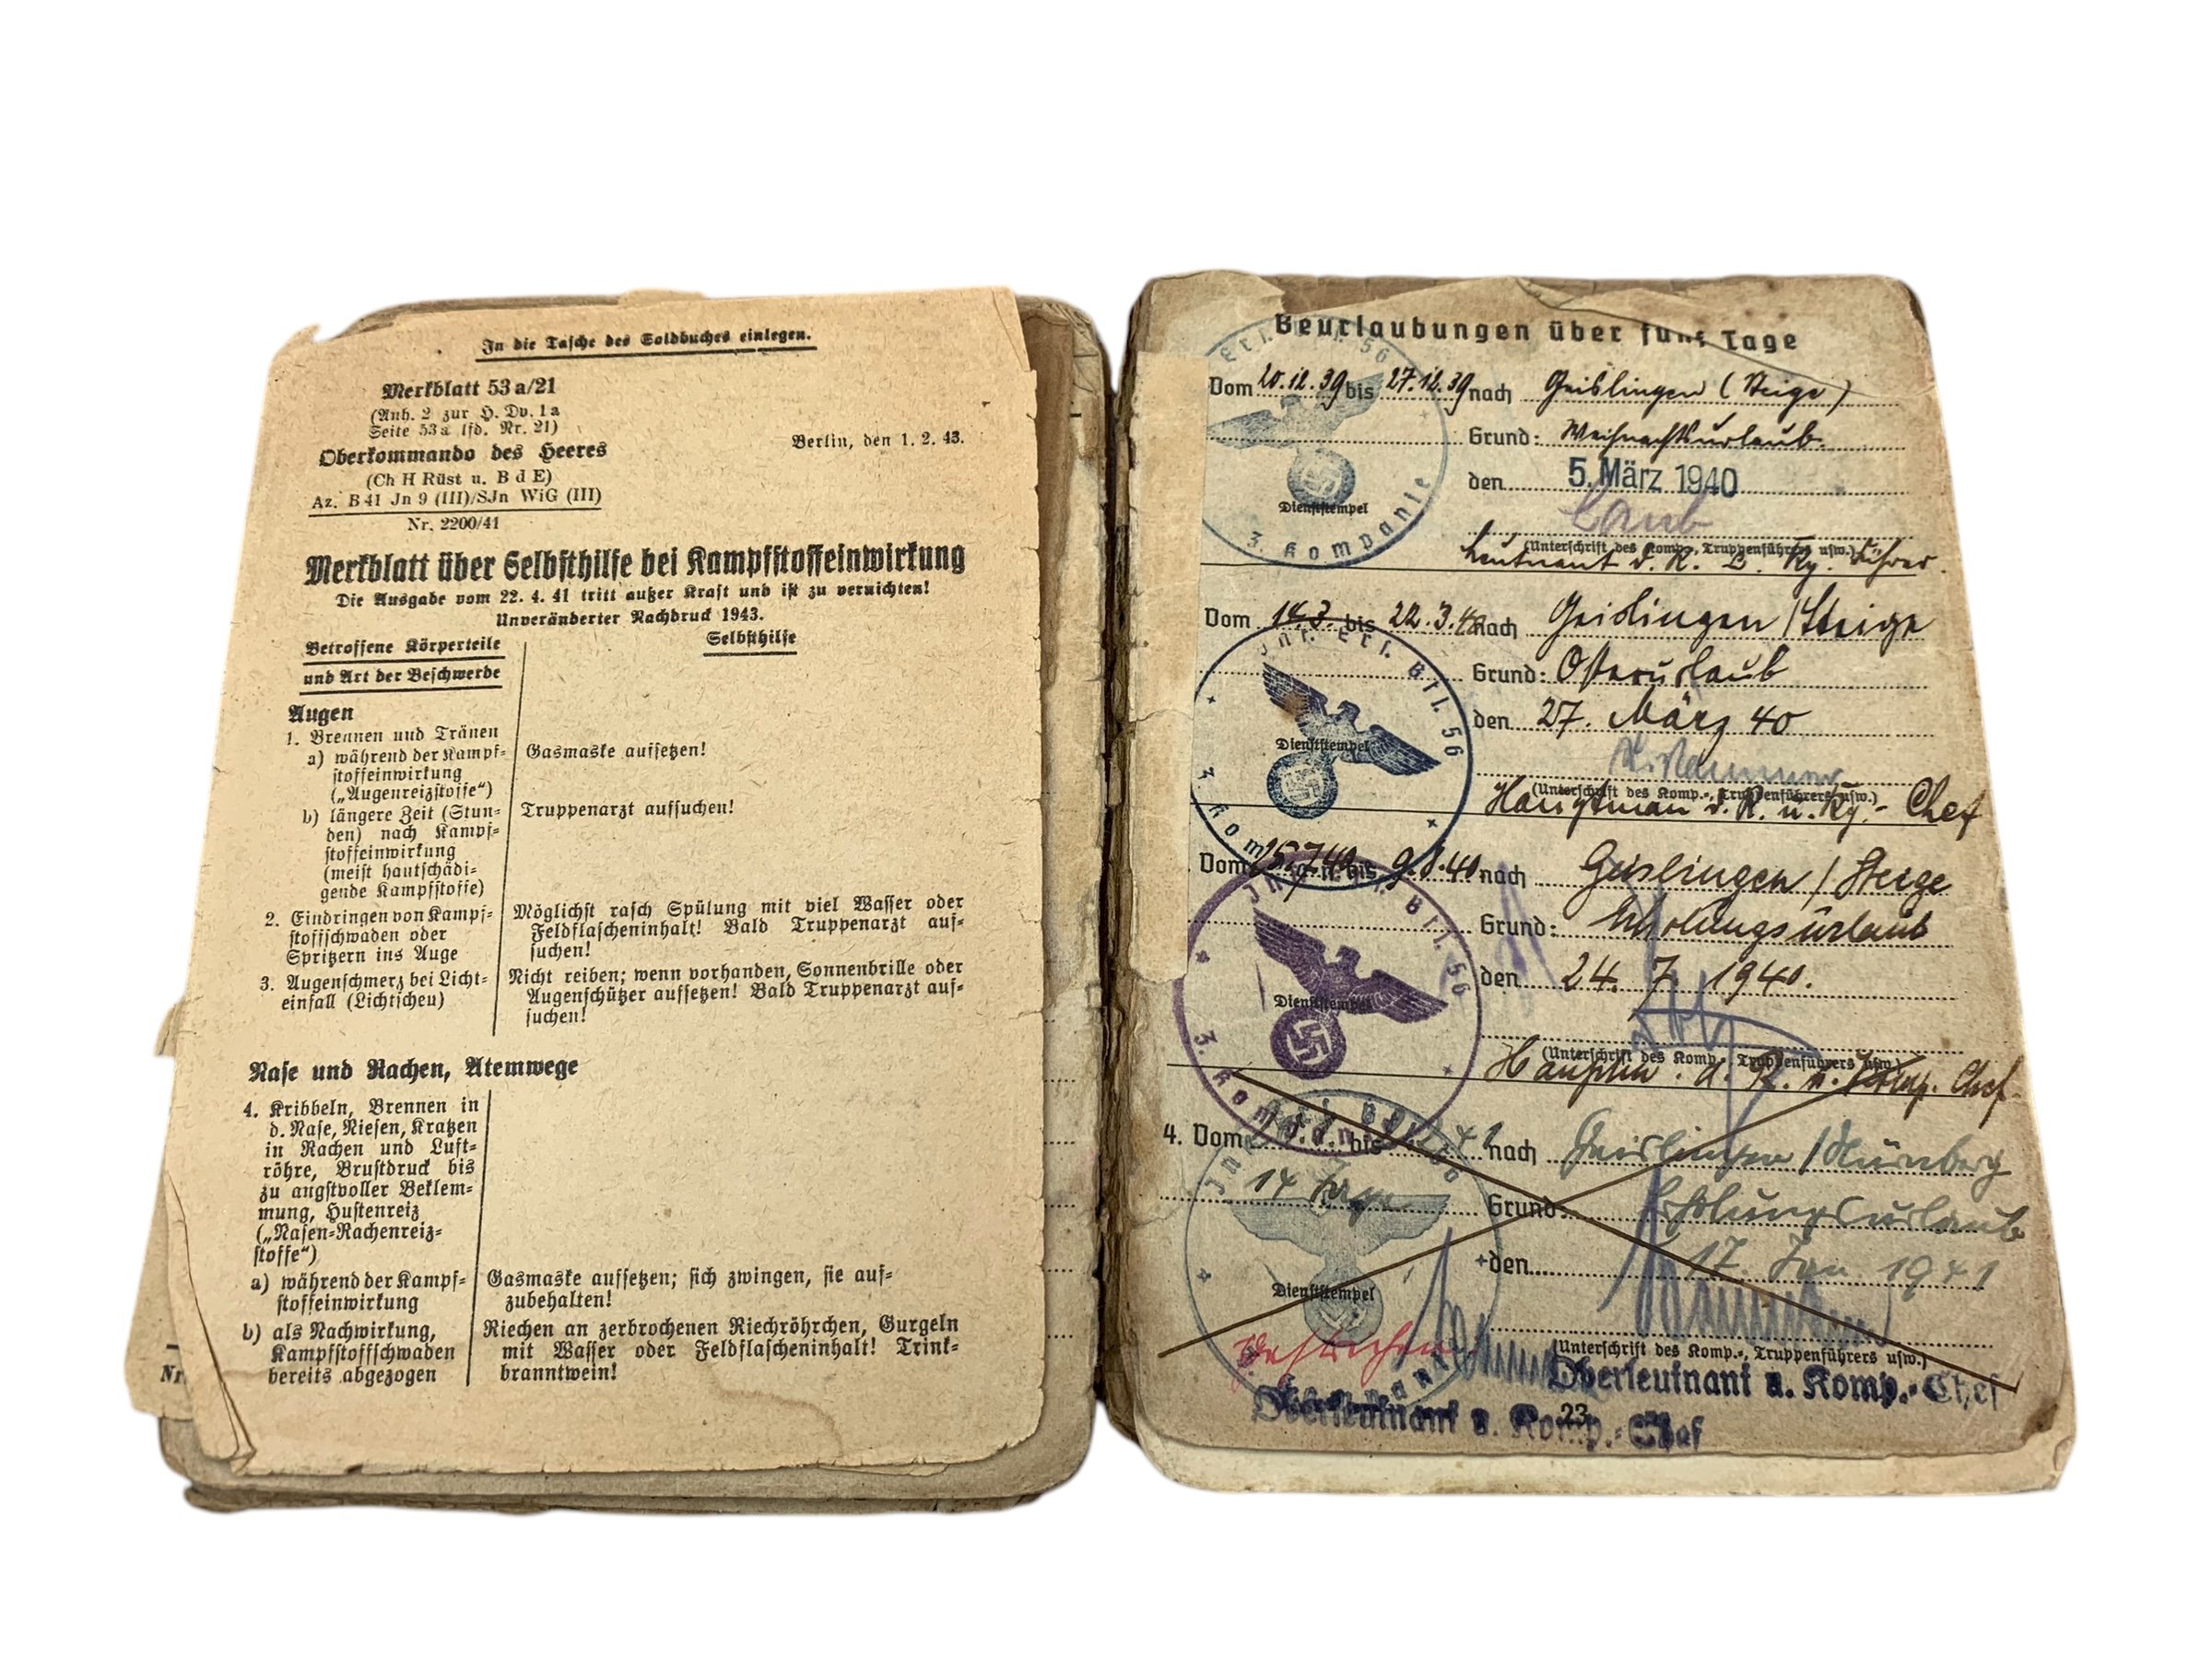 In die Tasche des Soldbuches einlegen.
Merkblatt 53 a/21
(Anh. 2 zur H. Dv. 1 a
Seite 53 a lfd. Nr. 21)
Oberkommando des Heeres
Berlin, den 1. 2. 43.
(Ch H Rüst u. B d E)
Az. B 41 Jn 9 (III)/SJn WiG (III)
Nr. 2200/41
Merkblatt über Selbsthilfe bei Kampfstoffeinwirkung
Die Ausgabe vom 22. 4. 41 tritt außer Kraft und ist zu vernichten!
Unveränderter Nachdruck 1943.
Betroffene Körperteile
und Art der Beschwerde
Selbsthilfe
Augen
1. Brennen und Tränen
a) während der Kampf-
stoffeinwirkung
(„Augenreizstoffe“)
Gasmaske aufsetzen!
b) längere Zeit (Stun-
den) nach Kampf-
stoffeinwirkung
(meist hautschädi-
gende Kampfstoffe)
Truppenarzt aufsuchen!
2. Eindringen von Kampf-
stoffschwaden oder
Spritzern ins Auge
Möglichst rasch Spülung mit viel Wasser oder
Feldflascheninhalt! Bald Truppenarzt auf-
suchen!
3. Augenschmerz bei Licht-
einfall (Lichtscheu)
Nicht reiben; wenn vorhanden, Sonnenbrille oder
Augenschützer aufsetzen! Bald Truppenarzt auf-
suchen!
Nase und Rachen, Atemwege
4. Kribbeln, Brennen in
d. Nase, Niesen, Kratzen
in Rachen und Luft-
röhre, Brustdruck bis
zu angstvoller Beklem-
mung, Hustenreiz
(„Nasen-Rachenreiz-
stoffe“)
a) während der Kampf-
stoffeinwirkung
Gasmaske aufsetzen; sich zwingen, sie auf-
zubehalten!
b) als Nachwirkung,
Kampfstoffschwaden
bereits abgezogen
Riechen an zerbrochenen Riechröhrchen, Gurgeln
mit Wasser oder Feldflascheninhalt! Trink-
branntwein!
Nr
Beurlaubungen über fünf Tage
Vom 20.12.39 bis 27.12.39 nach Geislingen (Steige)
Grund: Weihnachtsurlaub.
den 5. März 1940
Dienststempel
3. Kompanie
(Unterschrift des Komp.-, Truppenführers usw.)
Leutnant d. R. u. Kp. Führer.
Vom 14.3. bis 22.3.40 nach Geislingen/Steige
Inf. Erf. Btl. 56
Grund: Osterurlaub
den 27. März 40
Dienststempel
(Unterschrift des Komp.-, Truppenführers usw.)
Hauptmann d. R. u. Kp.-Chef
Vom 15.7.40 bis 9.8.40 nach Geislingen/Steige
Grund: Erholungsurlaub
den 24. 7. 1940.
Dienststempel
(Unterschrift des Komp.-, Truppenführers usw.)
Hauptm. d. R. u. Komp. Chef.
4. Vom bis 41 nach Geislingen/Nürnberg
14 Tage
Grund: Erholungsurlaub
den 17. Jan 1941
Dienststempel
Gestrichen
(Unterschrift des Komp.-, Truppenführers usw.)
Oberleutnant u. Komp.-Chef
Oberleutnant u. Komp.-Chef
23